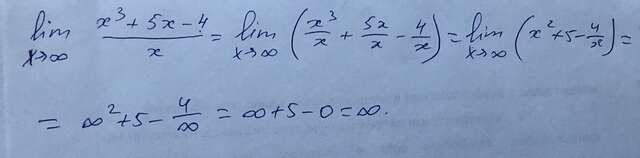 lim x→∞ (x³ + 5x − 4)/x = lim x→∞ (x³/x + 5x/x − 4/x) = lim x→∞ (x² + 5 − 4/x) =
= ∞² + 5 − 4/∞ = ∞ + 5 − 0 = ∞.